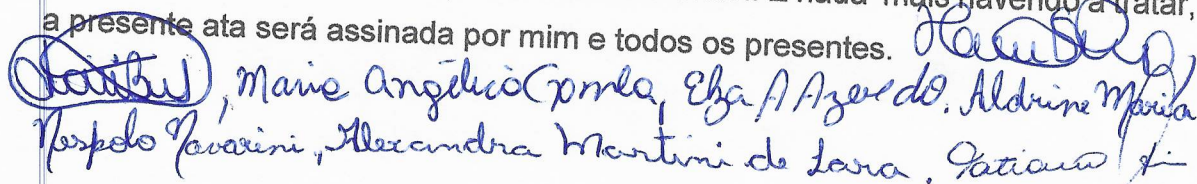 nada mais havendo a tratar,
a presente ata será assinada por mim e todos os presentes.
, Maria Angélica, Elza A Azevedo, Aldrine Maria
Nespolo Navarini, Alexandra Martini de Lara, Tatiana